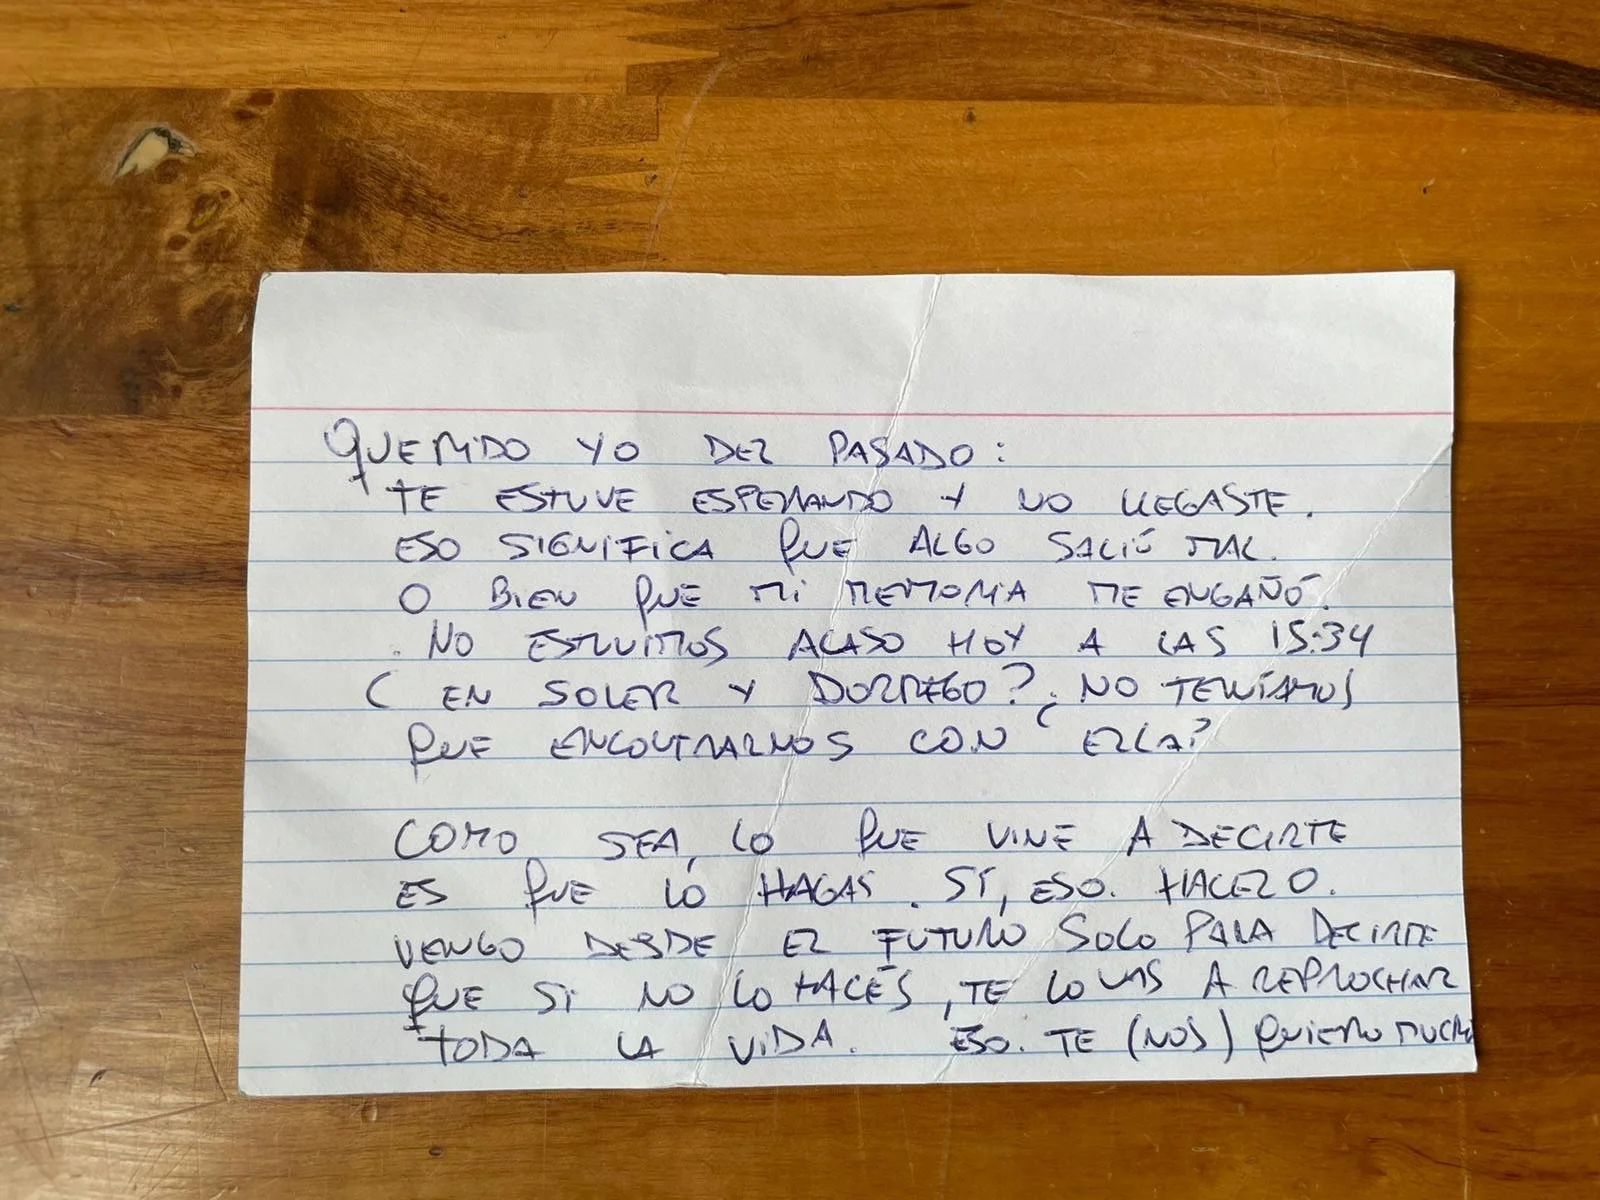 QUERIDO YO DEL PASADO:
TE ESTUVE ESPERANDO Y NO LLEGASTE.
ESO SIGNIFICA QUE ALGO SALIÓ MAL.
O BIEN QUE MI MEMORIA ME ENGAÑÓ.
¿NO ESTUVIMOS ACASO HOY A LAS 15:34
EN SOLER Y DORREGO? ¿NO TENÍAMOS
QUE ENCONTRARNOS CON ELLA?
COMO SEA, LO QUE VINE A DECIRTE
ES QUE LO HAGAS. SÍ, ESO. HACELO.
VENGO DESDE EL FUTURO SOLO PARA DECIRTE
QUE SI NO LO HACÉS, TE LO VAS A REPROCHAR
TODA LA VIDA. ESO. TE (NOS) QUIERO MUCHO